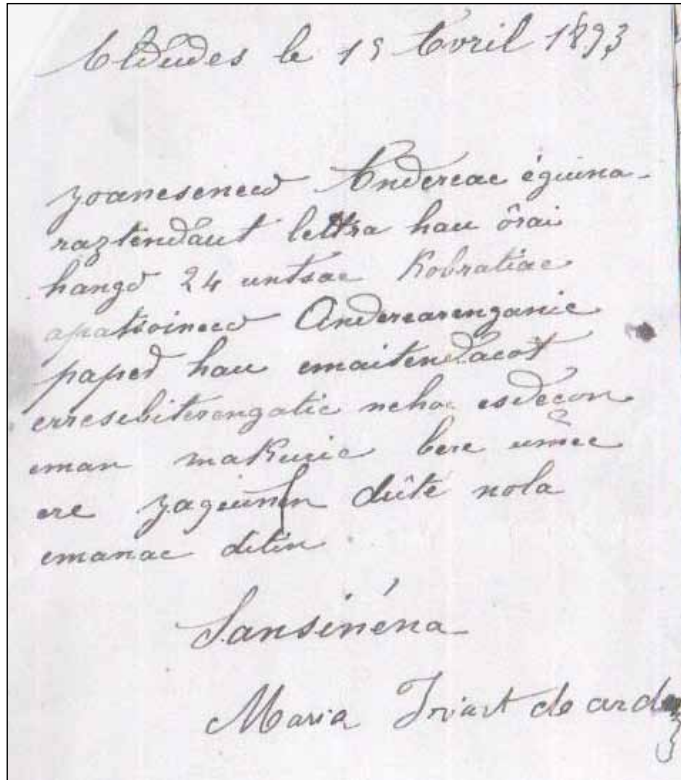 Aldudes le 15 Avril 1893
yoanesened Andereac éguina-
raztendaut lettra hau ôrai
hango 24 untsac Kobratiac
Anderearenganic
paper hau emaitendacot
erresebiterengatic nehoc esdecon
eman makuric bere umec
ere yaquinen dûte nola
emanac diten
Sansinéna
Maria Iriart de